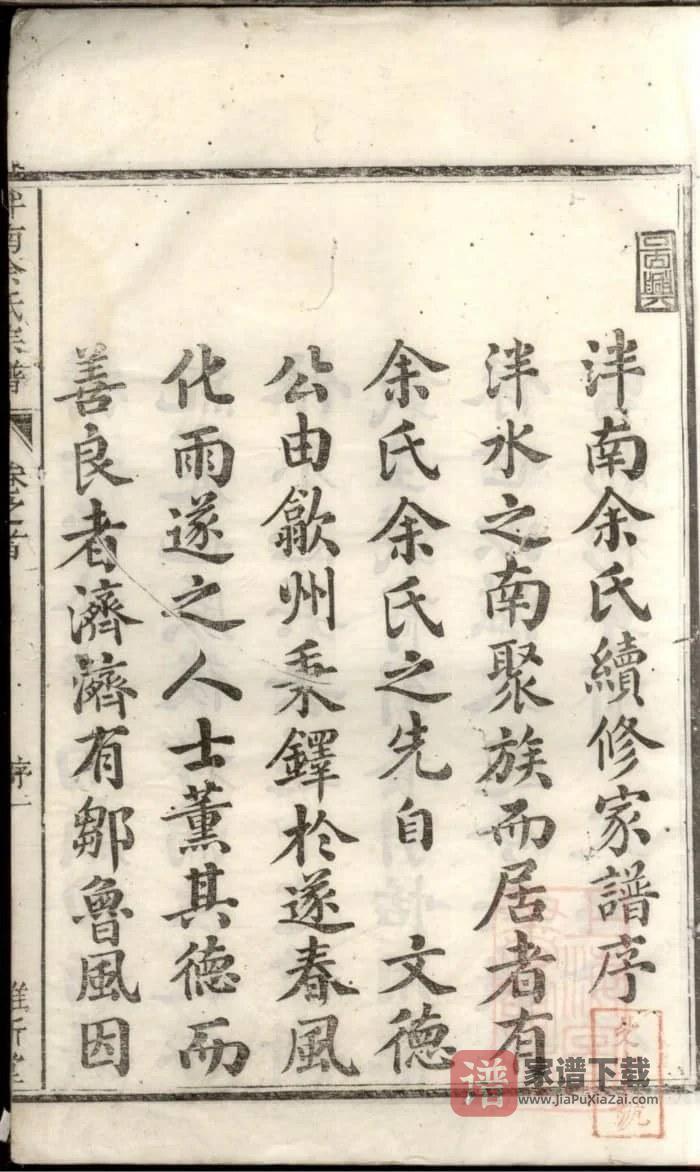 泮南余氏續修家譜序
泮水之南聚族而居者有
余氏余氏之先自 文德
公由歙州秉鐸於遂春風
化雨遂之人士薰其德而
善良者濟濟有鄒魯風因
泮南余氏宗譜 卷之首 序一
谱 家谱下载
www.JiaPuXiaZai.com